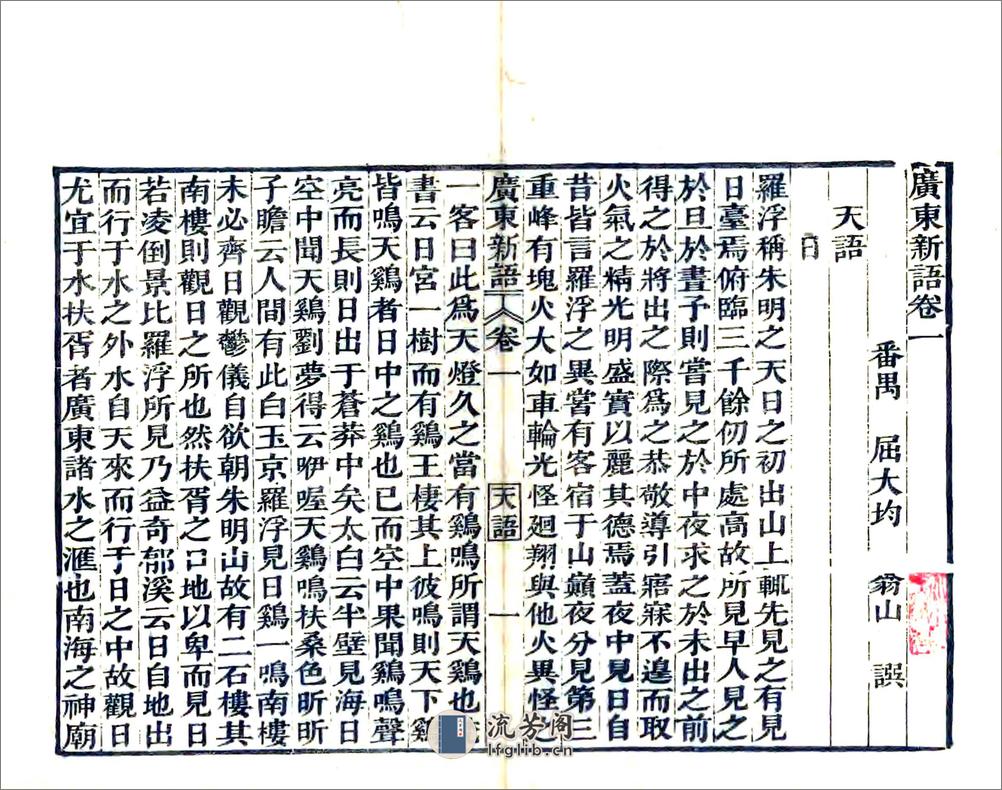 廣東新語卷一
番禺 屈大均 翁山 譔
天語
日
羅浮稱朱明之天日之初出山上輒先見之有見
日臺焉俯臨三千餘仞所處高故所見早人見之
於旦於晝予則嘗見之於中夜求之於未出之前
得之於將出之際爲之恭敬導引寤寐不遑而取
火氣之精光明盛實以麗其德焉蓋夜中見日自
昔皆言羅浮之異嘗有客宿于山巔夜分見第三
重峰有塊火大如車輪光怪廻翔與他火異怪之
廣東新語 卷一 天語 一
一客曰此爲天燈久之當有鷄鳴所謂天鷄也
書云日宮一樹而有鷄王棲其上彼鳴則天下鷄
皆鳴天鷄者日中之鷄也已而空中果聞鷄鳴聲
亮而長則日出于蒼莽中矣太白云半壁見海日
空中聞天鷄劉夢得云咿喔天鷄鳴扶桑色昕昕
子瞻云人間有此白玉京羅浮見日鷄一鳴南樓
未必齊日觀鬱儀自欲朝朱明山故有二石樓其
南樓則觀日之所也然扶胥之口地以卑而見日
若凌倒景比羅浮所見乃益奇郁溪云日自地出
而行于水之外水自天來而行于日之中故觀日
尤宜于水扶胥者廣東諸水之滙也南海之神廟
流芳阁
lfglib.cn